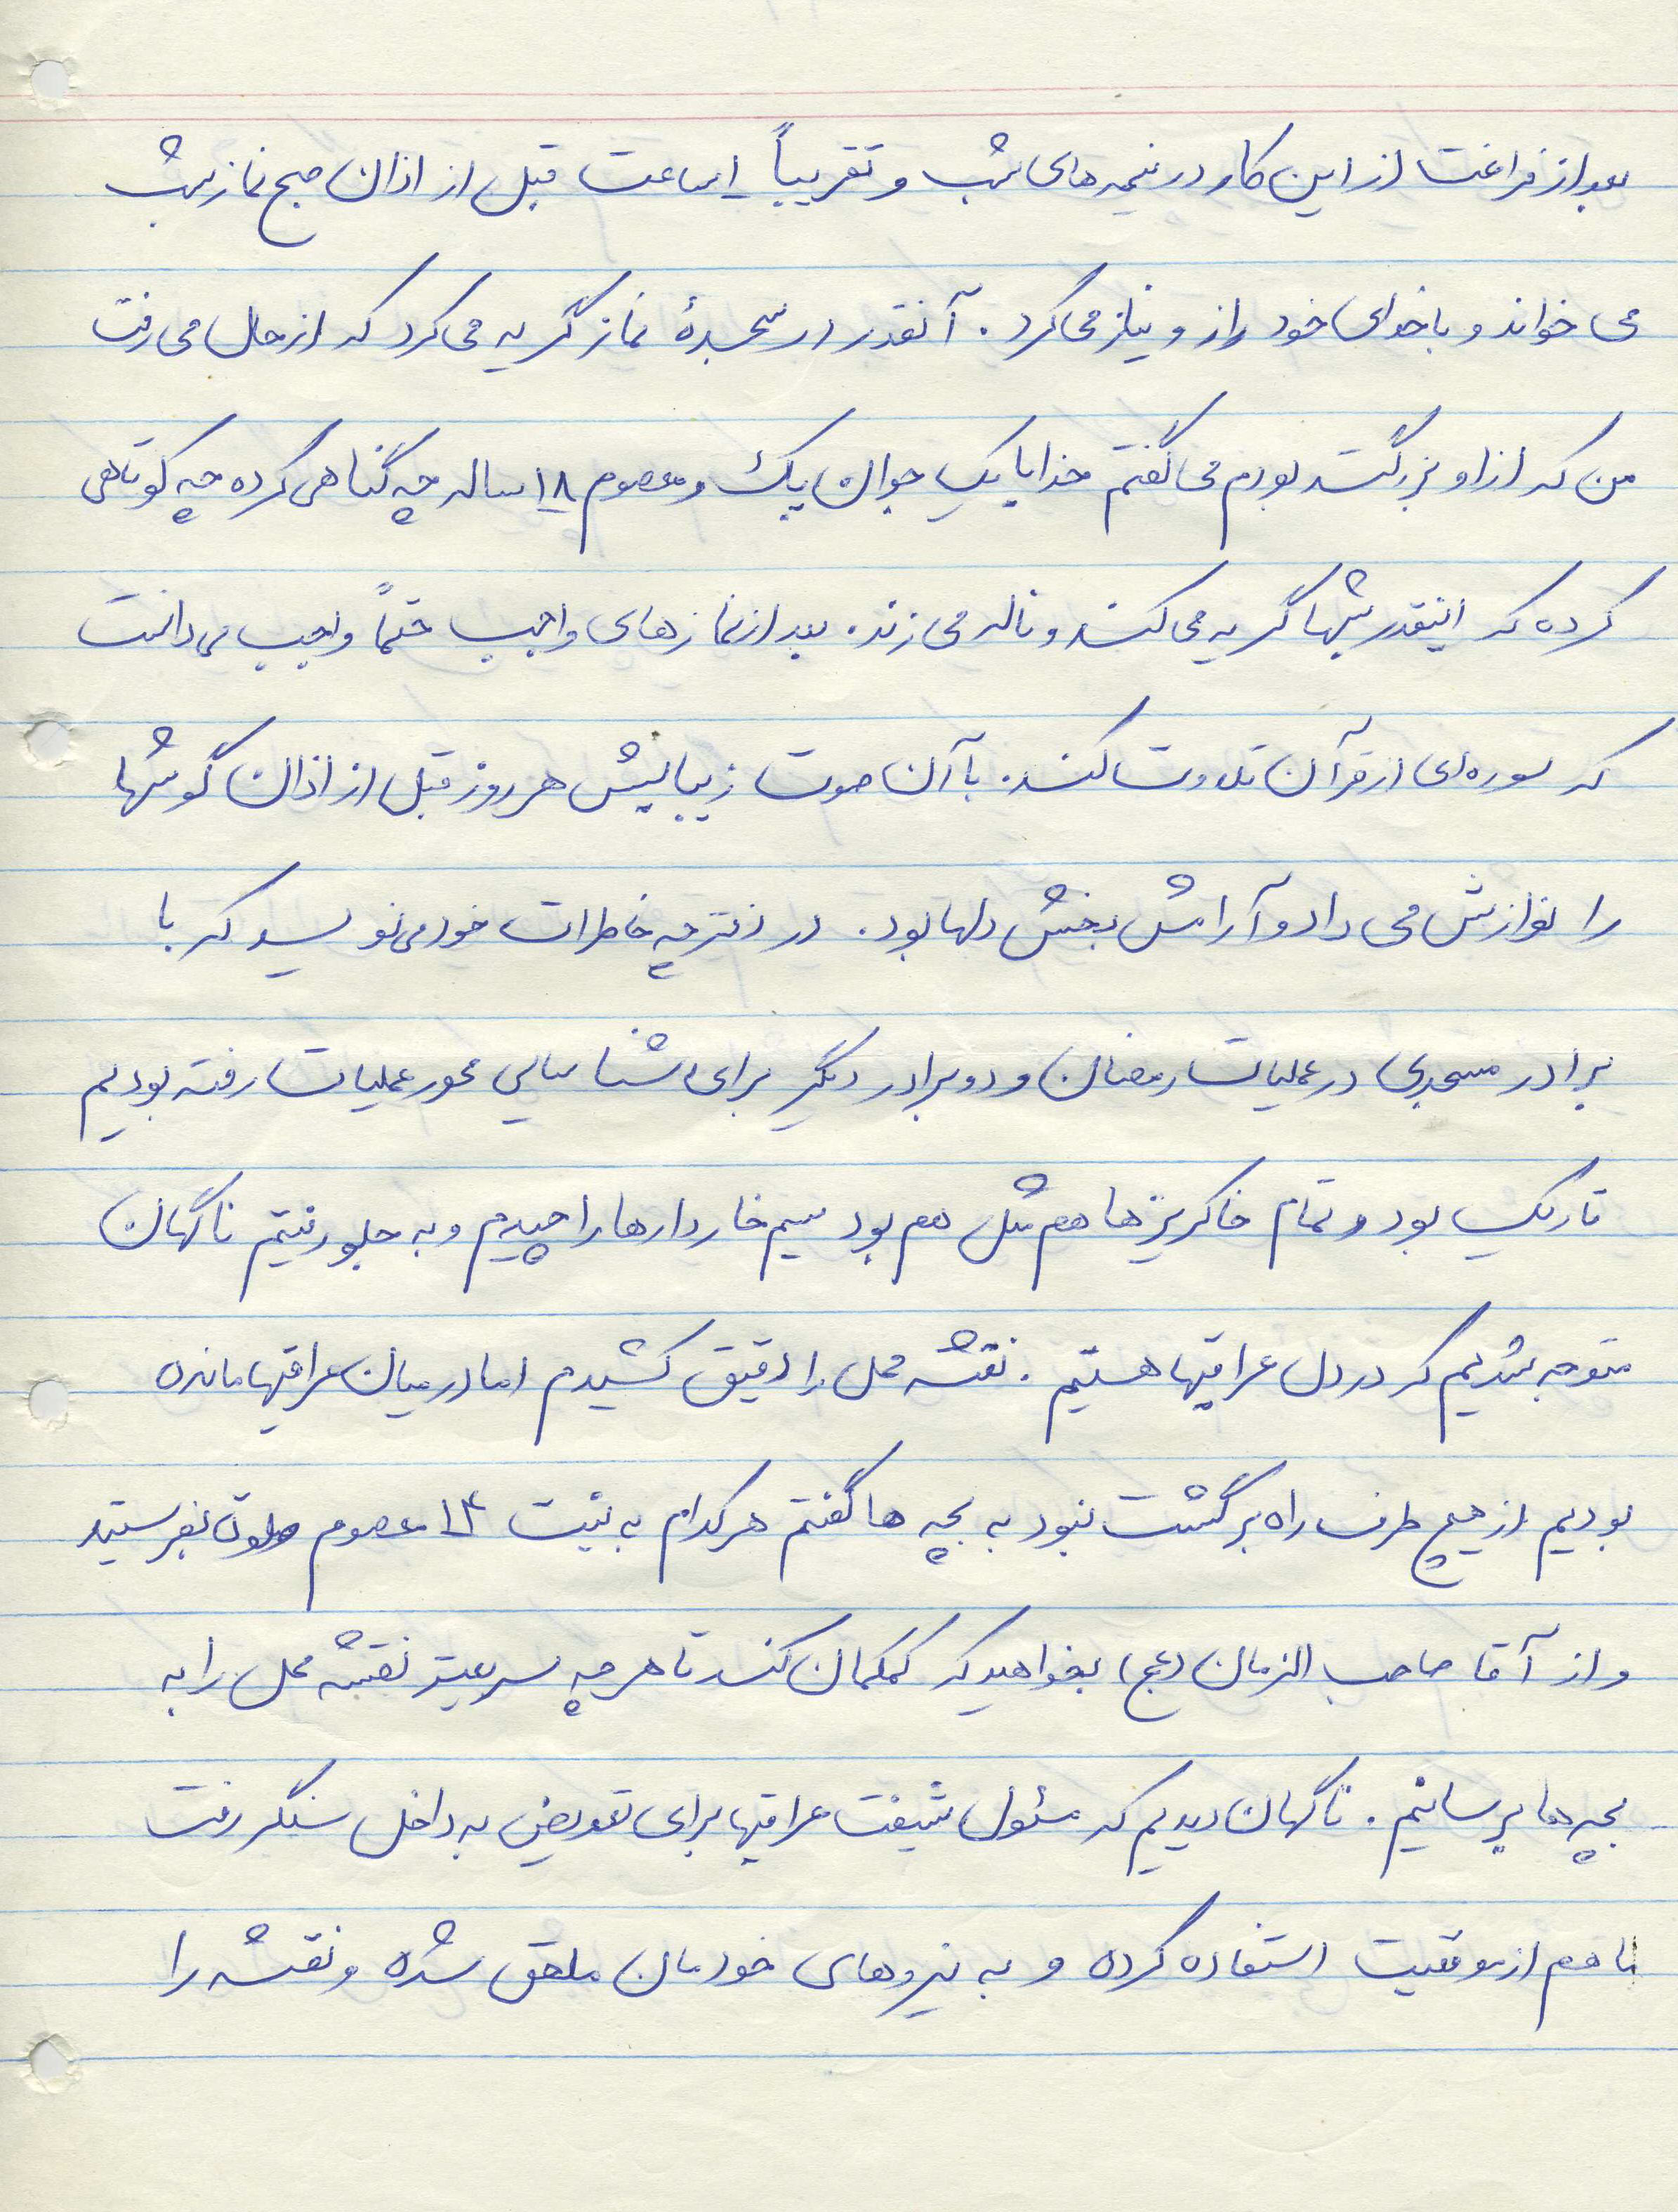 بعد از فراغت از این کار در نیمه های شب و تقریباً ۱ ساعت قبل از اذان صبح نماز شب
می خواند و با خدای خود راز و نیاز می کرد. آنقدر در سجدهٔ نماز گریه می کرد که از حال می رفت
من که از او بزرگتر بودم می گفتم خدایا یک جوان پاک و معصوم ۱۸ ساله چه گناهی کرده چه کوتاهی
کرده که اینقدر شبها گریه می کند و ناله می زند. بعد از نمازهای واجب حتماً واجب می دانست
که سوره ای از قرآن تلاوت کند. با آن صوت زیبایش هر روز قبل از اذان گوشها
را نوازش می داد و آرامش بخش دلها بود. در دفترچه خاطرات خود می نویسد که با
برادر مسجدی در عملیات رمضان و دو برادر دیگر برای شناسایی محور عملیات رفته بودیم
تاریک بود و تمام خاکریزها هم مثل هم بود سیم خاردارها را چیدم و به جلو رفتیم ناگهان
متوجه شدیم که در دل عراقیها هستیم. نقشه محل را دقیق کشیدم اما در میان عراقیها مانده
بودیم از هیچ طرف راه برگشت نبود به بچه ها گفتم هر کدام به نیت ۱۴ معصوم صلوات بفرستید
و از آقا صاحب الزمان (عج) بخواهید که کمکمان کند تا هر چه سریعتر نقشه محل را به
بچه ها برسانیم. ناگهان دیدیم که مسئول شیفت عراقیها برای تعویض به داخل سنگر رفت
ما هم از موقعیت استفاده کرده و به نیروهای خودمان ملحق شده و نقشه را